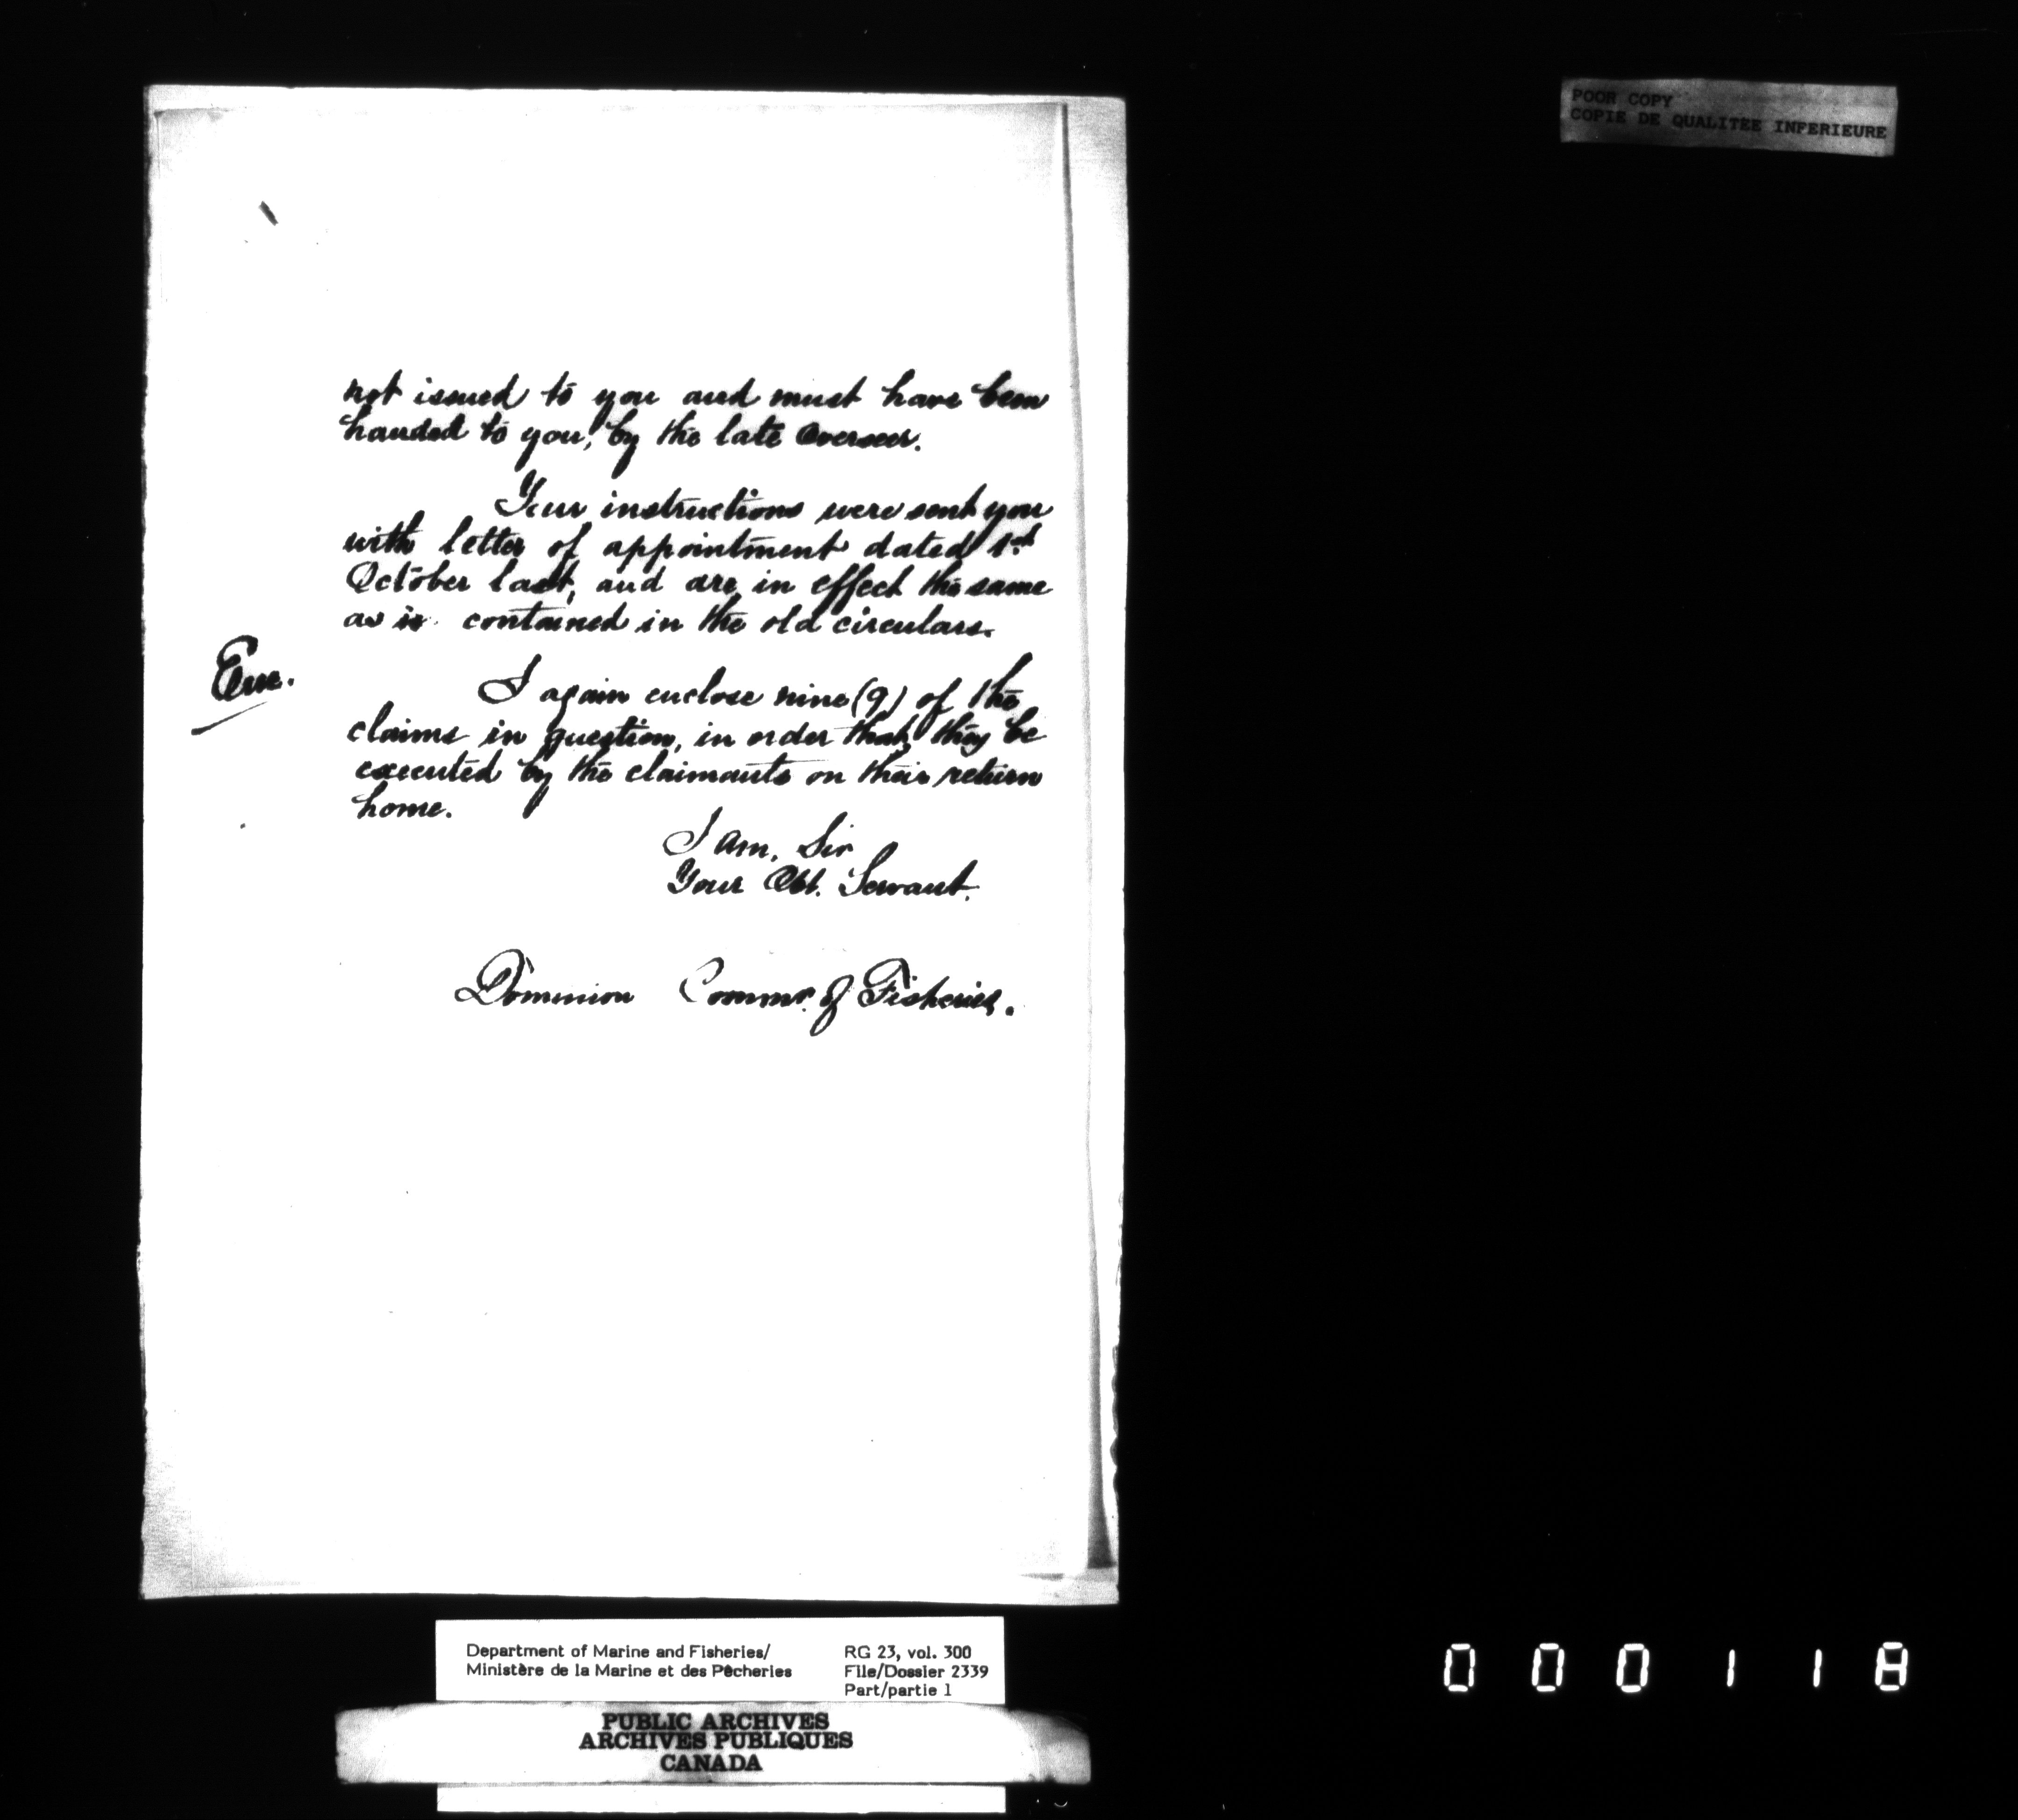 POOR COPY
COPIE DE QUALITEE INFERIEURE
not issued to you and must have been
handed to you, by the late Overseer.
Your instructions were sent you
with letter of appointment dated 1st
October last, and are in effect the same
as is contained in the old circulars.
Enc.
I again enclose nine (9) of the
claims in question, in order that they be
executed by the claimants on their return
home.
I am, Sir
Your Obt. Servant.
Dominion Commr. of Fisheries.
Department of Marine and Fisheries/
Ministère de la Marine et des Pêcheries
RG 23, vol. 300
File/Dossier 2339
Part/partie 1
PUBLIC ARCHIVES
ARCHIVES PUBLIQUES
CANADA
000118